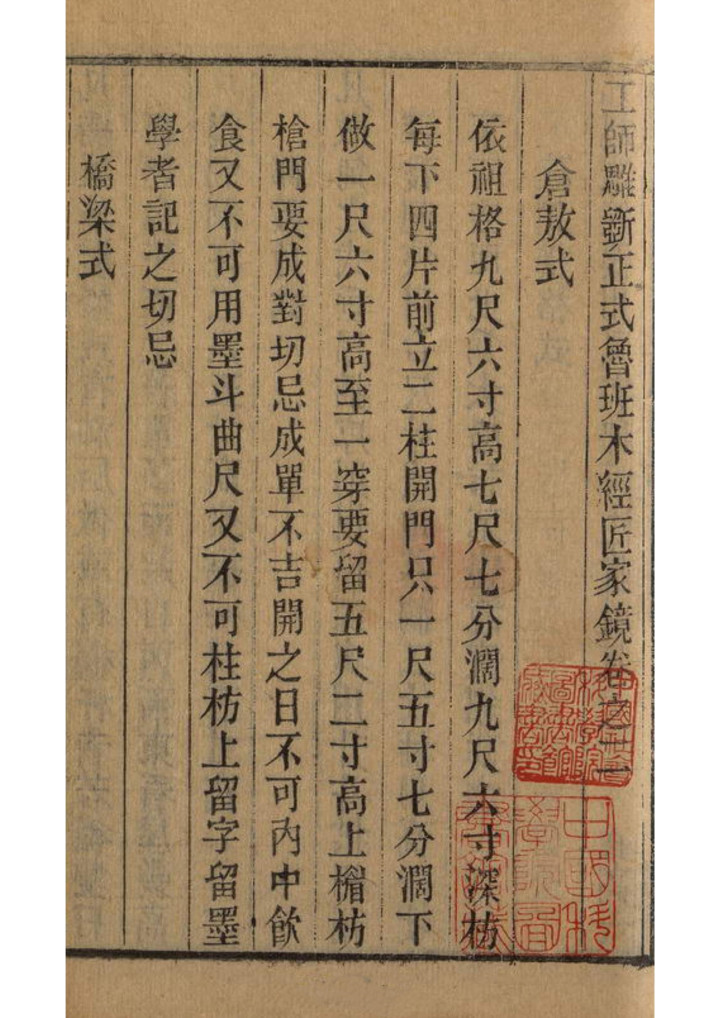 工師雕斵正式魯班木經匠家鏡卷之二
倉敖式
依祖格九尺六寸高七尺七分濶九尺六寸深枋
每下四片前立二柱開門只一尺五寸七分濶下
做一尺六寸高至一穿要留五尺二寸高上楣枋
槍門要成對切忌成單不吉開之日不可內中飲
食又不可用墨斗曲尺又不可柱枋上留字留墨
學者記之切忌
橋梁式